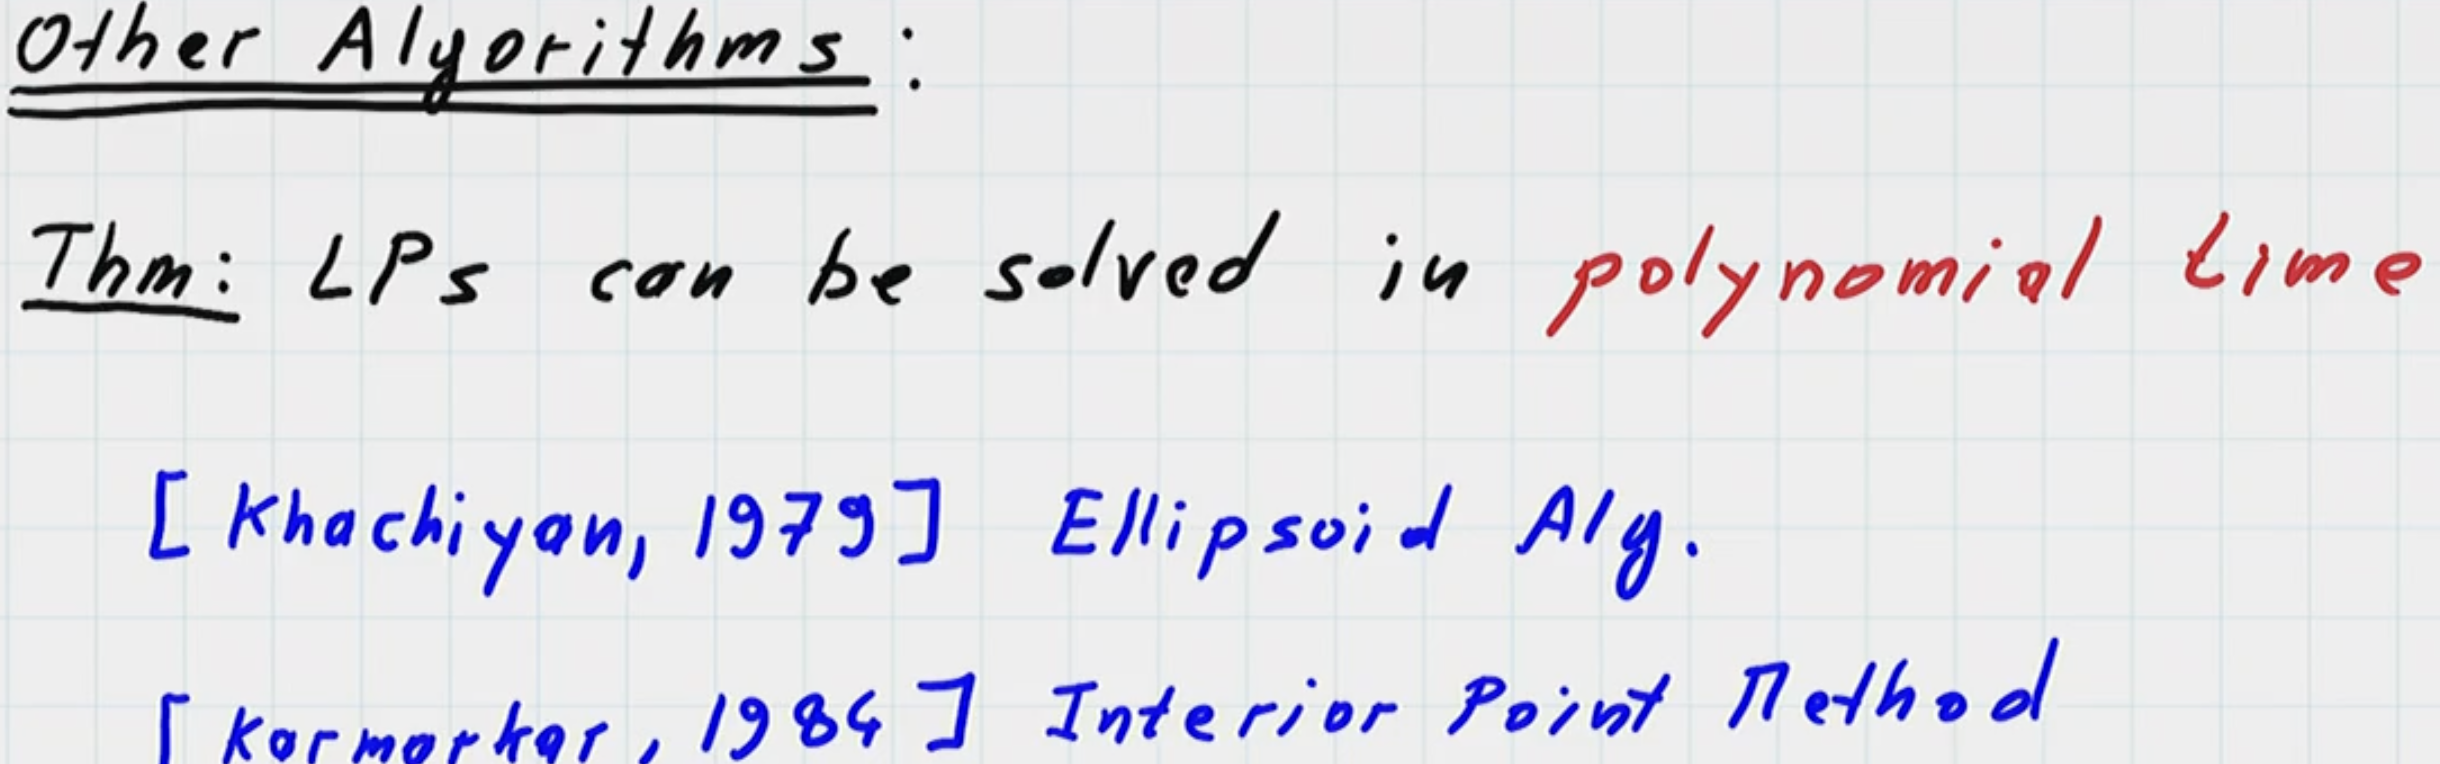 Other Algorithms:
Thm: LPs can be solved in polynomial time
[Khachiyan, 1979] Ellipsoid Alg.
[Karmarkar, 1984] Interior Point Method